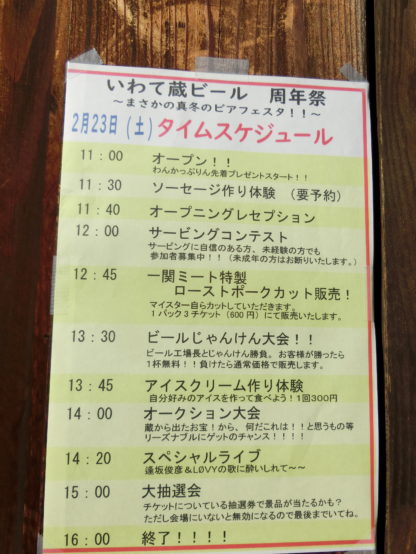 いわて蔵ビール　周年祭
～まさかの真冬のビアフェスタ！！～
2月23日（土）タイムスケジュール
11：00　オープン！！
わんかっぷりん先着プレゼントスタート！！
11：30　ソーセージ作り体験　（要予約）
11：40　オープニングレセプション
12：00　サービングコンテスト
サービングに自信のある方、未経験の方でも
参加者募集中！！（未成年の方はお断りいたします。）
12：45　一関ミート特製
ローストポークカット販売！
マイスター自らカットしていただきます。
1パック3チケット（600円）にて販売いたします。
13：30　ビールじゃんけん大会！！
ビール工場長とじゃんけん勝負。お客様が勝ったら
1杯無料！！負けたら通常価格で販売します。
13：45　アイスクリーム作り体験
自分好みのアイスを作って食べよう！1回300円
14：00　オークション大会
蔵から出たお宝！から、何だこれは！！と思うもの等
リーズナブルにゲットのチャンス！！！！
14：20　スペシャルライブ
逢坂俊彦＆LØVYの歌に酔いしれて～～
15：00　大抽選会
チケットについている抽選券で景品が当たるかも？
ただし会場にいないと無効になるので最後までいてね。
16：00　終了！！！！